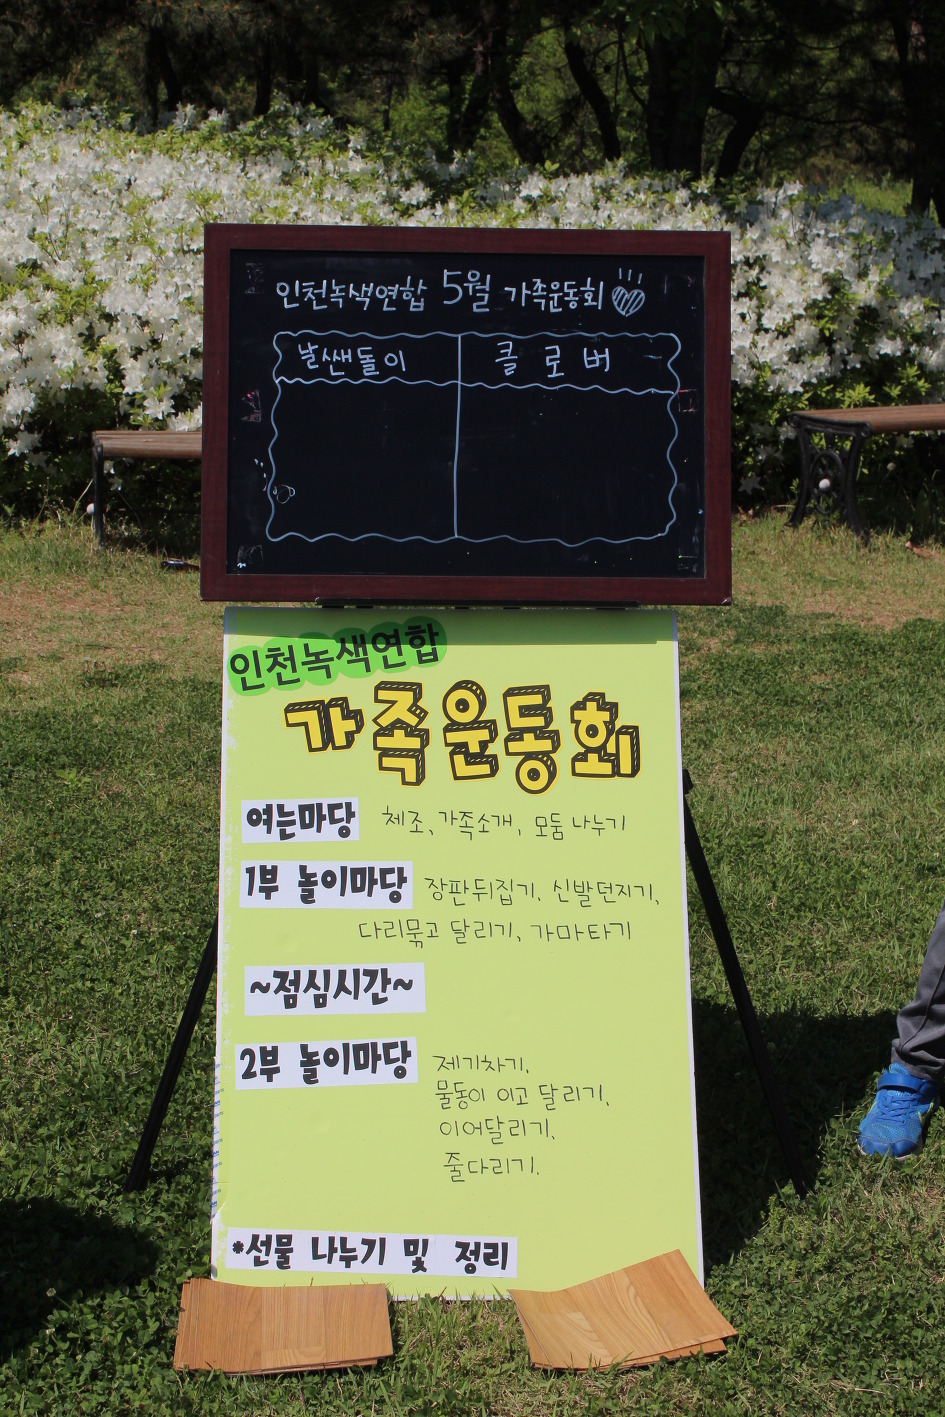 인천녹색연합 5월 가족운동회
날쌘돌이 클로버
인천녹색연합
가족운동회
여는마당 체조, 가족소개, 모둠 나누기
1부 놀이마당 장판뒤집기, 신발던지기,
다리묶고 달리기, 가마타기
~점심시간~
2부 놀이마당 제기차기,
물동이 이고 달리기,
이어달리기,
줄다리기.
*선물 나누기 및 정리